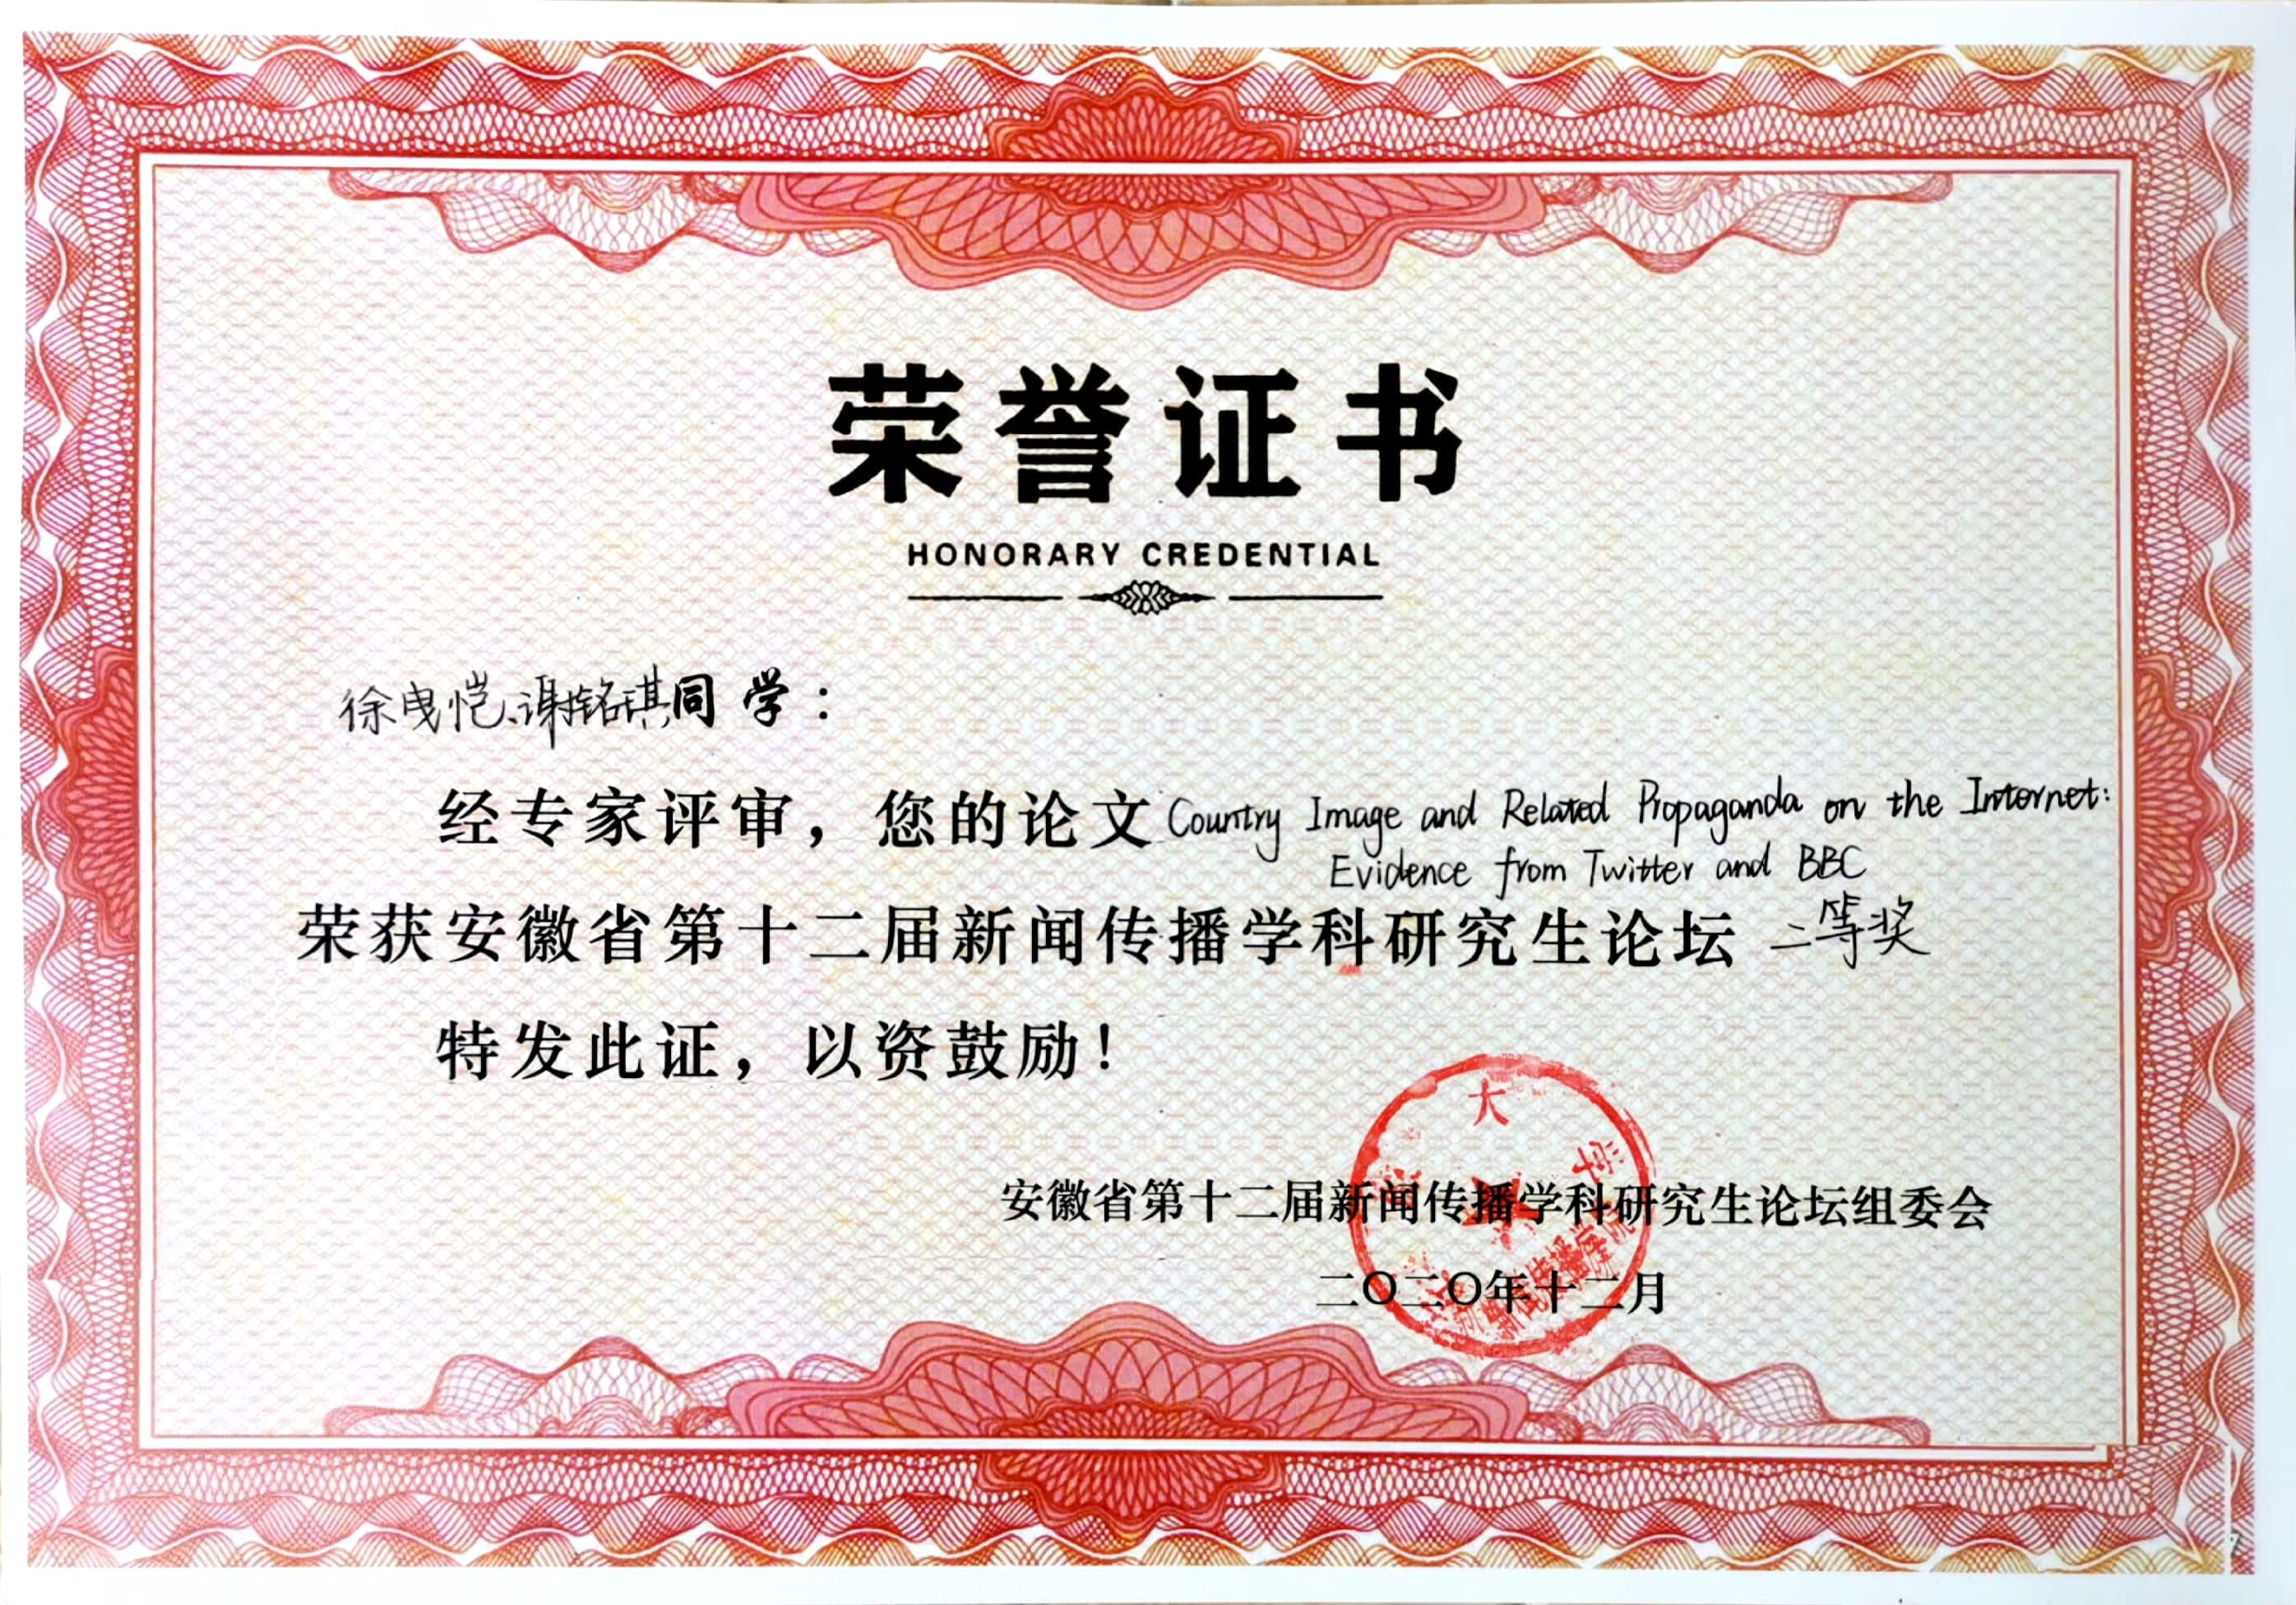 荣誉证书
HONORARY CREDENTIAL
徐曳恺、谢铭琪同学：
经专家评审，您的论文Country Image and Related Propaganda on the Internet:
Evidence from Twitter and BBC
荣获安徽省第十二届新闻传播学科研究生论坛 二等奖
特发此证，以资鼓励！
大学
安徽省第十二届新闻传播学科研究生论坛组委会
二〇二〇年十二月